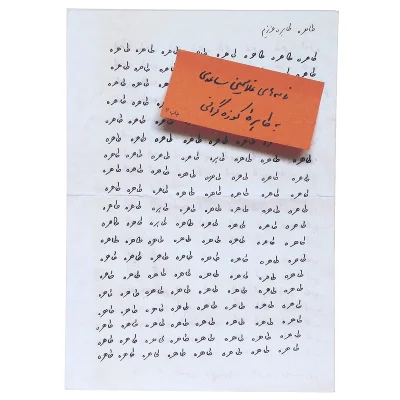 طاهره، طاهره عزیزم
طاهره طاهره طاهره طاهره طاهره طاهره طاهره طاهره
طاهره طاهره طاهره
طاهره طاهره
طاهره طاهره
طاهره طاهره
طاهره طاهره
نامه‌های غلامحسین ساعدی
به طاهرهٔ کوزه‌گرانی
چاپ ۲
طاهره طاهره طاهره طاهره طاهره طاهره طاهره طاهره
طاهره طاهره طاهره طاهره طاهره طاهره طاهره طاهره
طاهره طاهره طاهره طاهره طاهره طاهره طاهره طاهره
طاهره طاهره طاهره طاهره طاهره طاهره طاهره طاهره
طاهره طاهره طاهره طاهره طاهره طاهره طاهره طاهره
طاهره طاهره طاهره طاهره طاهره طاهره طاهره طاهره
طاهره طاهره طاهره طاهره طاهره طاهره طاهره طاهره
طاهره طاهره طاهره طاهره طاهره طاهره طاهره طاهره
طاهره طاهره طاهره طاهره طاهره طاهره طاهره طاهره
طاهره طاهره طاهره طاهره طاهره طاهره طاهره طاهره
طاهره طاهره طاهره طاهره طاهره طاهره طاهره طاهره
طاهره طاهره طاهره طاهره طاهره طاهره طاهره طاهره
طاهره طاهره طاهره طاهره طاهره طاهره طاهره طاهره